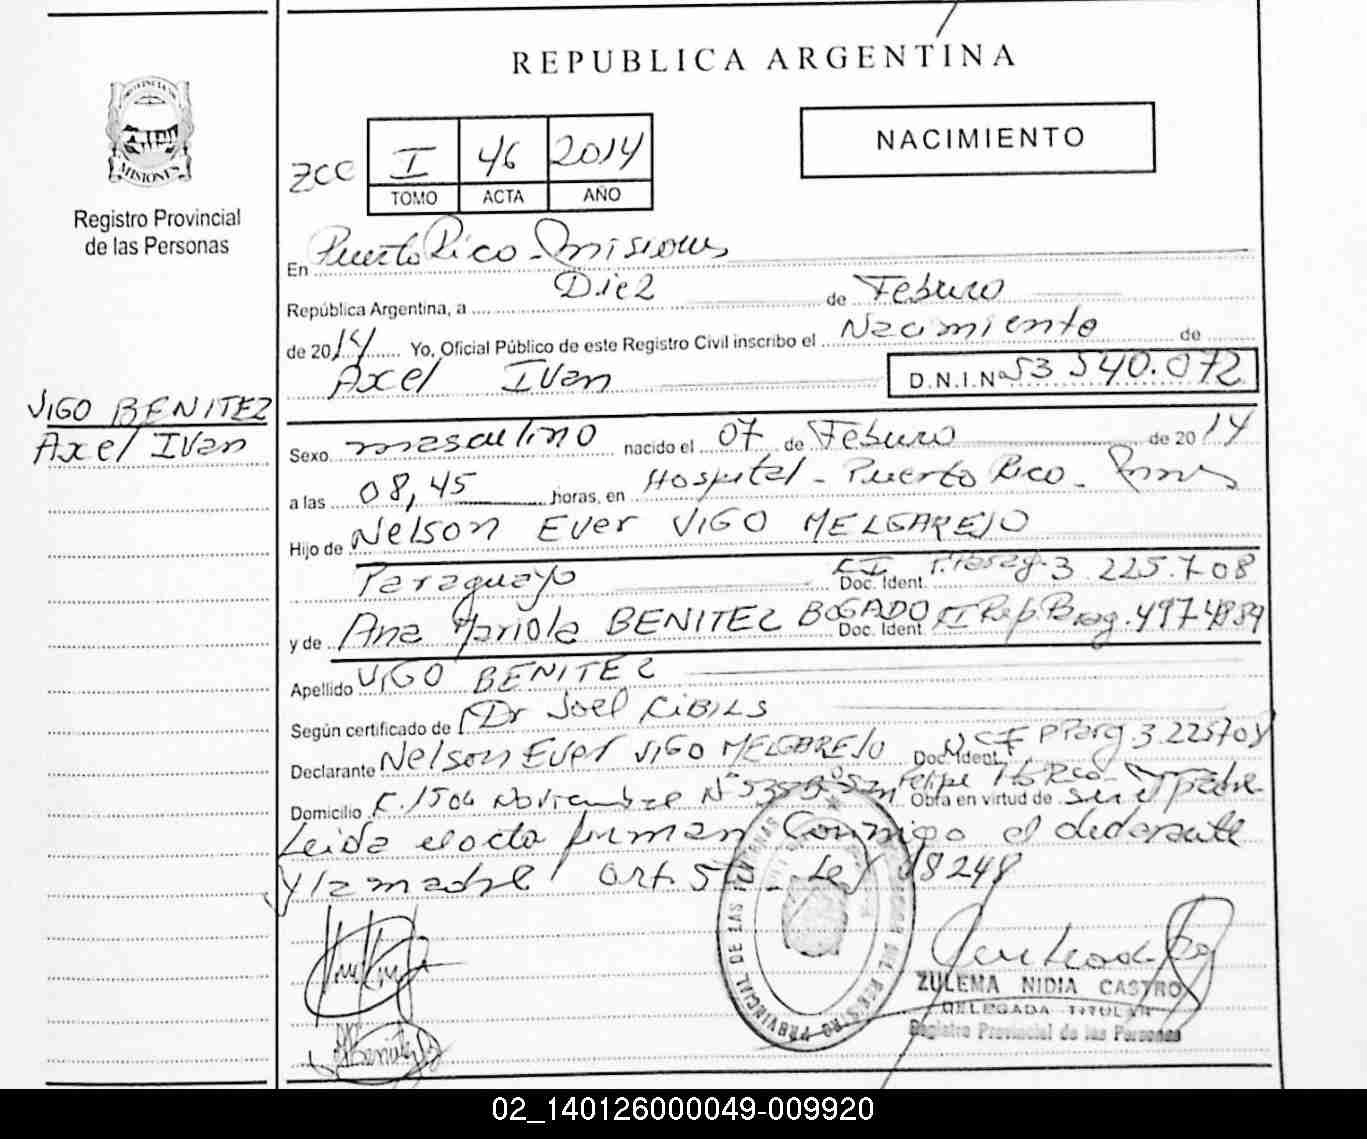 REPUBLICA ARGENTINA
PROVINCIA DE
MISIONES
Registro Provincial
de las Personas
NACIMIENTO
zcc I 46 2014
TOMO ACTA AÑO
En Puerto Rico - Misiones
República Argentina, a Diez de Febrero
de 2014 Yo, Oficial Público de este Registro Civil inscribo el Nacimiento de
Axel Ivan D.N.I.Nº 53 540.072
VIGO BENITEZ
Axel Ivan
Sexo masculino nacido el 07 de Febrero de 2014
a las 08,45 horas, en Hospital - Puerto Rico -
Hijo de Nelson Ever VIGO MELGAREJO
Paraguayo Doc. Ident. CI P.Parag. 3.225.708
y de Ana Mariola BENITEZ BOGADO Doc. Ident. CI Rep.Parag. 4974839
Apellido VIGO BENITEZ
Según certificado de Dr Joel RIBILS
Declarante Nelson Ever VIGO MELGAREJO Doc. Ident. CI P Parg 3.225708
Domicilio C. 15 de Noviembre Nº Obra en virtud de ser el padre
Leida el acta firman conmigo el declarante
y la madre Art. Ley 18248
REGISTRO PROVINCIAL DE LAS PERSONAS
ZULEMA NIDIA CASTRO
DELEGADA TITULAR
Registro Provincial de las Personas
02_140126000049-009920